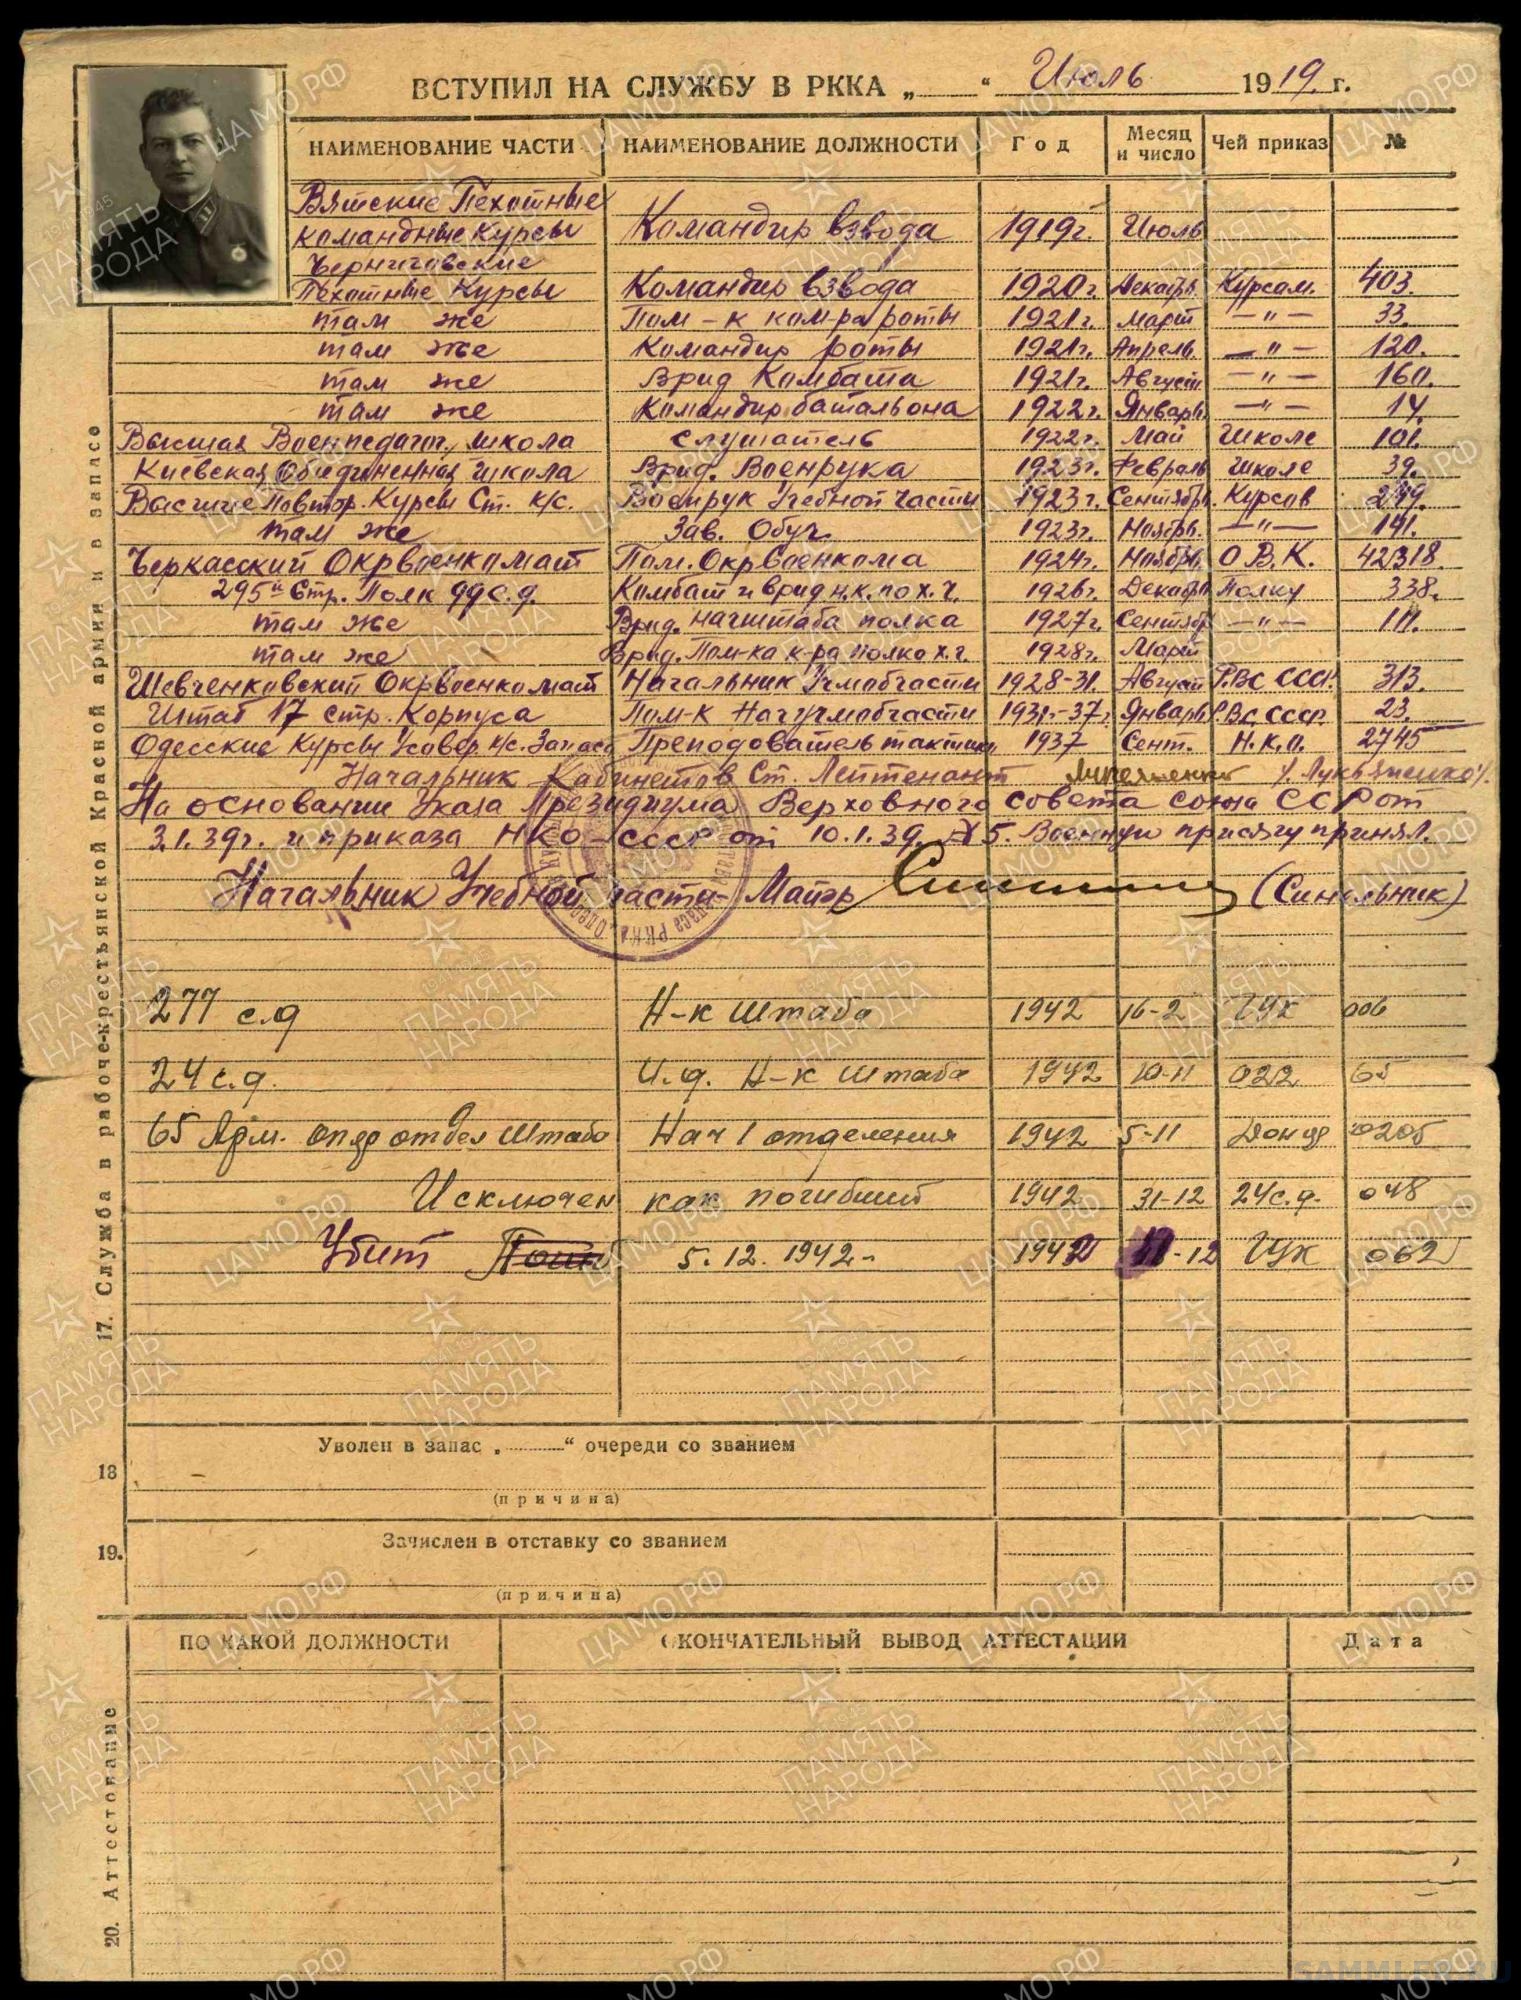 ВСТУПИЛ НА СЛУЖБУ В РККА „ “ Июль 1919 г.
НАИМЕНОВАНИЕ ЧАСТИ НАИМЕНОВАНИЕ ДОЛЖНОСТИ Год Месяц и число Чей приказ №
Вятские Пехотные
командные Курсы Командир взвода 1919г. Июль
Черниговские
Пехотные Курсы Командир взвода 1920г. Декабрь Курсам. 403.
там же Пом-к ком-ра роты 1921г. март —"— 33.
там же Командир роты 1921г. Апрель —"— 120.
там же Врид Комбата 1921г. Август —"— 160.
там же Командир батальона 1922г. Январь —"— 14.
Высшая Военпедагог. школа слушатель 1922г. Май Школе 101.
Киевская Объединенная школа Врид. Военрука 1923г. Февраль школе 39.
Высшие Повтор. Курсы Ст. к/с. Военрук Учебной части 1923г. Сентябрь Курсов 249.
там же Зав. Обуч. 1923г. Ноябрь —"— 141.
Черкасский Окрвоенкомат Пом. Окрвоенкома 1924г. Ноябрь О.В.К. 42318.
295й Стр. Полк 99 с.д. Комбат и врид н.к. по х.ч. 1926г. Декабрь Полку 338.
там же Врид. начштаба полка 1927г. Сентябр —"— 111.
там же Врид. Пом-ка к-ра полка х.ч. 1928г. Март
Шевченковский Окрвоенкомат Начальник Учмобчасти 1928-31. Август Р.ВС СССР. 313.
Штаб 17 стр. Корпуса Пом-к Начучмобчасти 1931-37г. Январь Р.ВС СССР 23.
Одесские Курсы Усовер к/с. Запаса Преподователь тактики 1937 Сент. Н.К.О. 2745
Начальник Кабинетов Ст. Лейтенант /Лукьяненко/.
На основании Указа Президиума Верховного совета союза ССР от
3.1.39г. и приказа НКО СССР от 10.1.39. № 5. Военную присягу принял.
Начальник Учебной части Майор (Синельник)
277 с.д Н-к штаба 1942 16-2 ГУК 006
24 с.д. И.д. Н-к штаба 1942 10-11 022 65
65 Арм. опер отдел штаба Нач 1 отделения 1942 5-11 Донф 0205
Исключен как погибший 1942 31-12 24 с.д. 048
Убит 5.12.1942- 1942 -12 ГУК 062
17. Служба в рабоче-крестьянской Красной армии и в запасе
18 Уволен в запас „ “ очереди со званием
(причина)
19. Зачислен в отставку со званием
(причина)
ПО КАКОЙ ДОЛЖНОСТИ ОКОНЧАТЕЛЬНЫЙ ВЫВОД АТТЕСТАЦИИ Дата
20. Аттестование
ЦАМО.РФ
1941-1945
ПАМЯТЬ НАРОДА
SAMMLER.RU